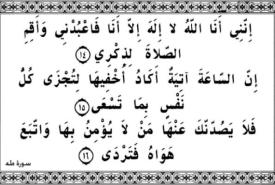 إِنَّنِي أَنَا اللَّهُ لا إِلَهَ إِلاَّ أَنَا فَاعْبُدْنِي وَأَقِمِ
الصَّلاةَ لِذِكْرِي ﴿١٤﴾
إِنَّ السَّاعَةَ آتِيَةٌ أَكَادُ أُخْفِيهَا لِتُجْزَى كُلُّ
نَفْسٍ بِمَا تَسْعَى ﴿١٥﴾
فَلاَ يَصُدَّنَّكَ عَنْهَا مَنْ لاَ يُؤْمِنُ بِهَا وَاتَّبَعَ
هَوَاهُ فَتَرْدَى ﴿١٦﴾
سورة طه